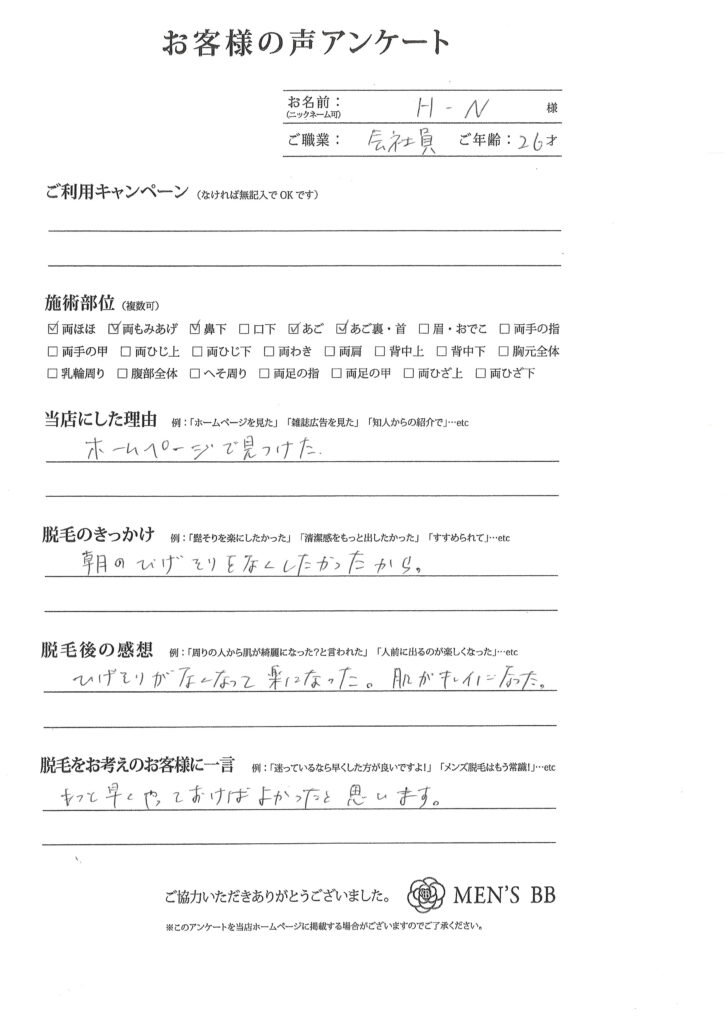 お客様の声アンケート
お名前：（ニックネーム可） H-N 様
ご職業： 会社員 ご年齢： 26才
ご利用キャンペーン（なければ無記入でOKです）
施術部位（複数可）
☑両ほほ ☑両もみあげ ☑鼻下 □口下 ☑あご ☑あご裏・首 □眉・おでこ □両手の指
□両手の甲 □両ひじ上 □両ひじ下 □両わき □両肩 □背中上 □背中下 □胸元全体
□乳輪周り □腹部全体 □へそ周り □両足の指 □両足の甲 □両ひざ上 □両ひざ下
当店にした理由 例：「ホームページを見た」「雑誌広告を見た」「知人からの紹介で」…etc
ホームページで見つけた．
脱毛のきっかけ 例：「髭そりを楽にしたかった」「清潔感をもっと出したかった」「すすめられて」…etc
朝のひげそりをなくしたかったから。
脱毛後の感想 例：「周りの人から肌が綺麗になった？と言われた」「人前に出るのが楽しくなった」…etc
ひげそりがなくなって楽になった。肌がキレイになった。
脱毛をお考えのお客様に一言 例：「迷っているなら早くした方が良いですよ！」「メンズ脱毛はもう常識！」…etc
もっと早くやっておけばよかったと思います。
ご協力いただきありがとうございました。 MEN'S BB
※このアンケートを当店ホームページに掲載する場合がございますのでご了承ください。